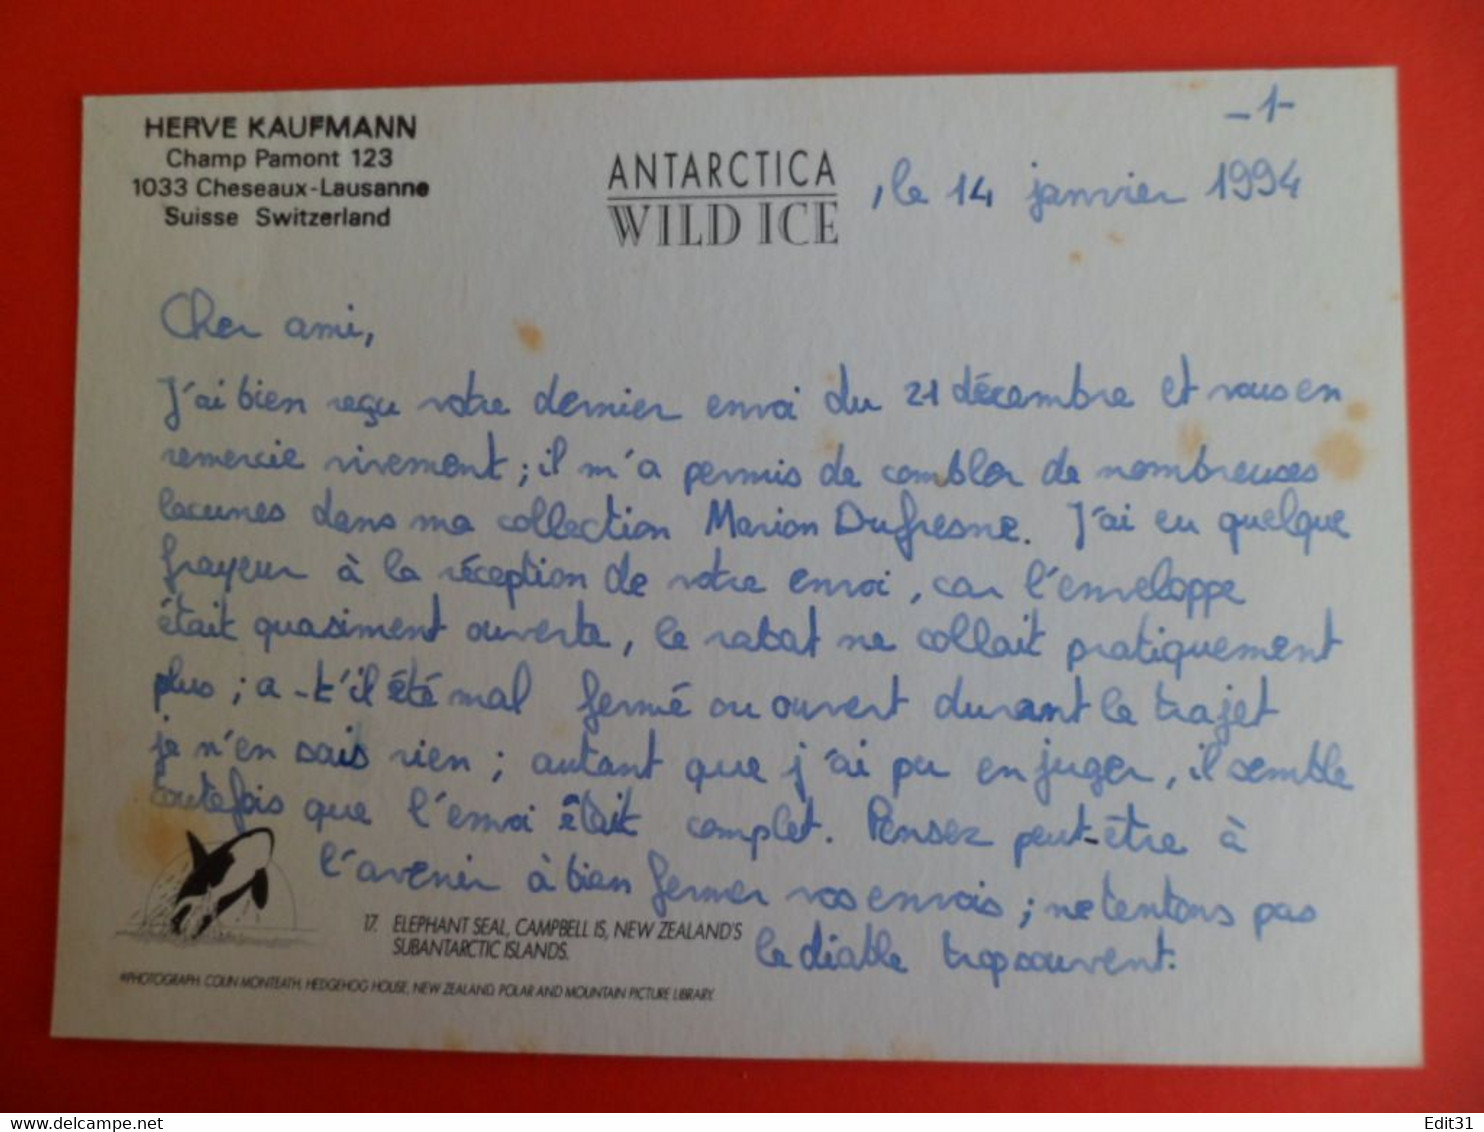 -1-
HERVE KAUFMANN
Champ Pamont 123
1033 Cheseaux-Lausanne
Suisse Switzerland
ANTARCTICA
WILD ICE
, le 14 janvier 1994
Cher ami,
J'ai bien reçu votre dernier envoi du 21 décembre et vous en
remercie vivement ; il m'a permis de combler de nombreuses
lacunes dans ma collection Marion Dufresne. J'ai eu quelque
frayeur à la réception de votre envoi, car l'enveloppe
était quasiment ouverte, le rabat ne collait pratiquement
plus ; a-t'il été mal fermé ou ouvert durant le trajet
je n'en sais rien ; autant que j'ai pu en juger, il semble
toutefois que l'envoi était complet. Pensez peut-être à
l'avenir à bien fermer vos envois ; ne tentons pas
le diable trop souvent.
17. ELEPHANT SEAL, CAMPBELL IS, NEW ZEALAND'S
SUBANTARCTIC ISLANDS.
PHOTOGRAPH: COLIN MONTEATH, HEDGEHOG HOUSE, NEW ZEALAND. POLAR AND MOUNTAIN PICTURE LIBRARY.
delcampe.net
Edit31